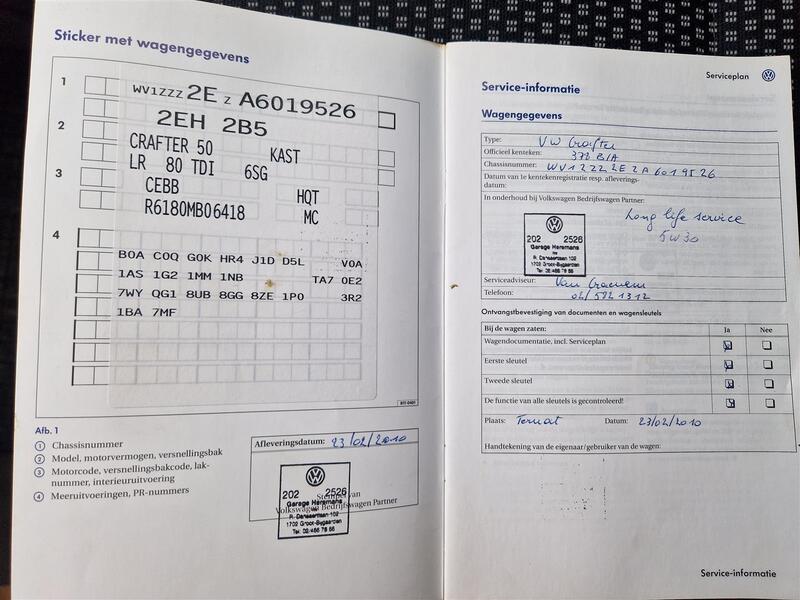 Sticker met wagengegevens
1
WV1ZZZ 2E Z A6019526
2
2EH 2B5
CRAFTER 50 KAST
3
LR 80 TDI 6SG
CEBB HQT
R6180MB06418 MC
4
B0A C0Q G0K HR4 J1D D5L V0A
1AS 1G2 1MM 1NB TA7 0E2
7WY QG1 8UB 8GG 8ZE 1P0 3R2
1BA 7MF
Afb. 1
1 Chassisnummer
2 Model, motorvermogen, versnellingsbak
3 Motorcode, versnellingsbakcode, lak-
nummer, interieuruitvoering
4 Meeruitvoeringen, PR-nummers
Afleveringsdatum: 23/02/2010
Stempel van
Volkswagen Bedrijfswagen Partner
202 2526
Garage Heremans
1702 Groot-Bijgaarden
Serviceplan
Service-informatie
Wagengegevens
Type: VW Crafter
Officieel kenteken: 378 BIA
Chassisnummer: WV1ZZZ2EZA6019526
Datum van 1e kentekenregistratie resp. afleverings-
datum:
In onderhoud bij Volkswagen Bedrijfswagen Partner:
Long life service
5W30
202 2526
Garage Heremans
1702 Groot-Bijgaarden
Serviceadviseur:
Telefoon: 02/582 13 12
Ontvangstbevestiging van documenten en wagensleutels
Bij de wagen zaten: Ja Nee
Wagendocumentatie, incl. Serviceplan
Eerste sleutel
Tweede sleutel
De functie van alle sleutels is gecontroleerd!
Plaats: Ternat Datum: 23/02/2010
Handtekening van de eigenaar/gebruiker van de wagen:
Service-informatie